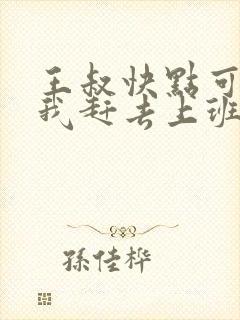 王叔快點可
我赶去上班
孫佳桦